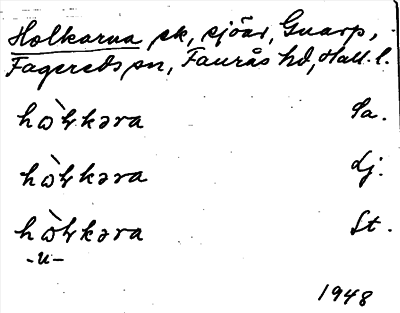 Holkarna sk, sjöar, Guarp,
Fagereds sn, Faurås hd, Hall. l.
hòlkəra Sa.
hòlkəra Lj.
hòlkəra St.
-u-
1948